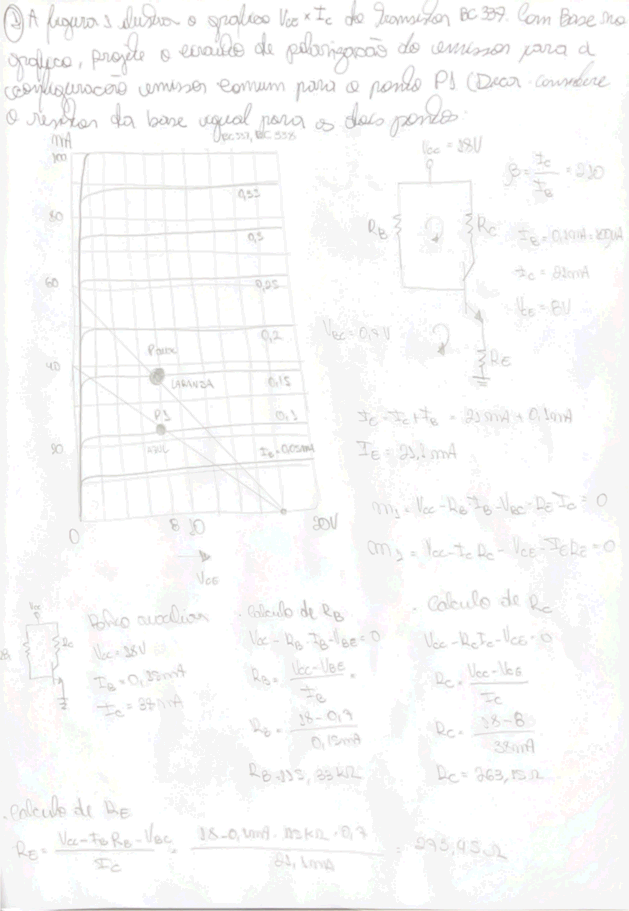 ① A figura 1 ilustra o gráfico Vce x Ic do transistor BC 337. Com Base no
gráfico, projete o circuito de polarização do emissor para a
configuração emissor comum para o ponto P1. (Dica: considere
o resistor da base igual para os dois pontos.
mA
BC 337, BC 338
100
80
60
40
20
0
8 10
20V
VCE
0,35
0,3
0,25
0,2
0,15
0,1
IB=0,05mA
Ponto
LARANJA
P1
AZUL
Vcc = 18V
RB
RC
RE
VBE = 0,7V
β = Ic/IB = 210
IB = 0,1mA = 100μA
Ic = 21mA
VCE = 8V
IE = Ic + IB = 21mA + 0,1mA
IE = 21,1mA
m1 = Vcc - RB·IB - VBE - RE·IE = 0
m2 = Vcc - Ic RC - VCE - IE RE = 0
Vcc
RC
Ponto auxiliar
Vcc = 18V
IB = 0,15mA
Ic = 37mA
· Calculo de RB
Vcc - RB·IB - VBE = 0
RB = Vcc - VBE / IB
RB = 18 - 0,7 / 0,15mA
RB = 115,33 kΩ
· Calculo de RC
Vcc - RC Ic - VCE = 0
RC = Vcc - VCE / Ic
RC = 18 - 8 / 38mA
RC = 263,15 Ω
· Calculo de RE
RE = Vcc - IB RB - VBE / Ic = 18 - 0,1mA · 115kΩ - 0,7 / 21,1mA = 273,95 Ω